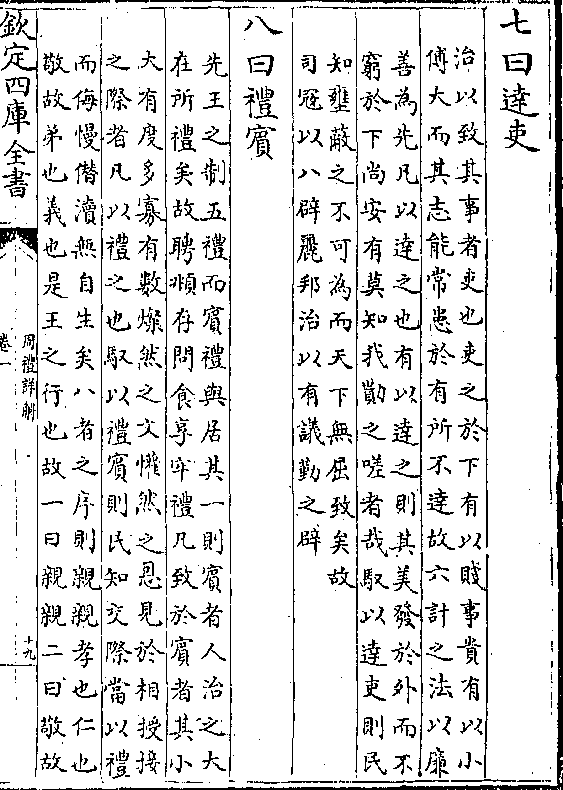 七曰逹吏
治以致其事者吏也吏之於下有以賤事貴有以小
傅大而其志能常患於有所不達故六計之法以廉
善為先凡以達之也有以達之則其美發於外而不
窮於下尚安有莫知我勩之嗟者哉馭以達吏則民
知壅蔽之不可為而天下無屈致矣故
司冦以八辟麗邦治以有議勤之辟
八曰禮賔
先王之制五禮而賓禮與居其一則賓者人治之大
在所禮矣故聘頫存問食享牢禮凡致於賓者其小
大有度多寡有數燦然之文懽然之恩見於相授接
之際者凡以禮之也馭以禮賓則民知交際當以禮
而侮慢僭瀆無自生矣八者之序則親親孝也仁也
敬故弟也義也是王之行也故一曰親親二曰敬故
欽定四庫全書
周禮詳解
卷一
十九